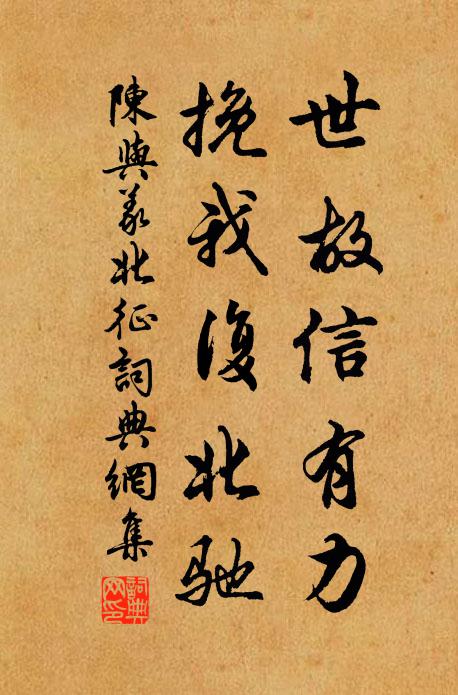 世故信有力
挽我復北馳
陳與義北征詞典網集
詞典网印